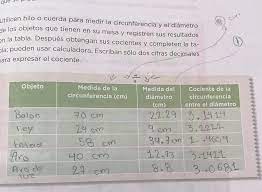 utilicen hilo o cuerda para medir la circunferencia y el diámetro
de los objetos que tienen en su mesa y registren sus resultados
en la tabla. Después obtengan sus cocientes y completen la ta-
bla; pueden usar calculadora. Escriban sólo dos cifras decimales
para expresar el cociente.
Objeto
Medida de la circunferencia (cm)
Medida del diámetro (cm)
Cociente de la circunferencia entre el diámetro
Balon 70 cm 22.29 3.1414
29 cm 9 cm
58 cm
Aro 40 cm 12.73 3.1421
Aro de 27 8.8 3.0681